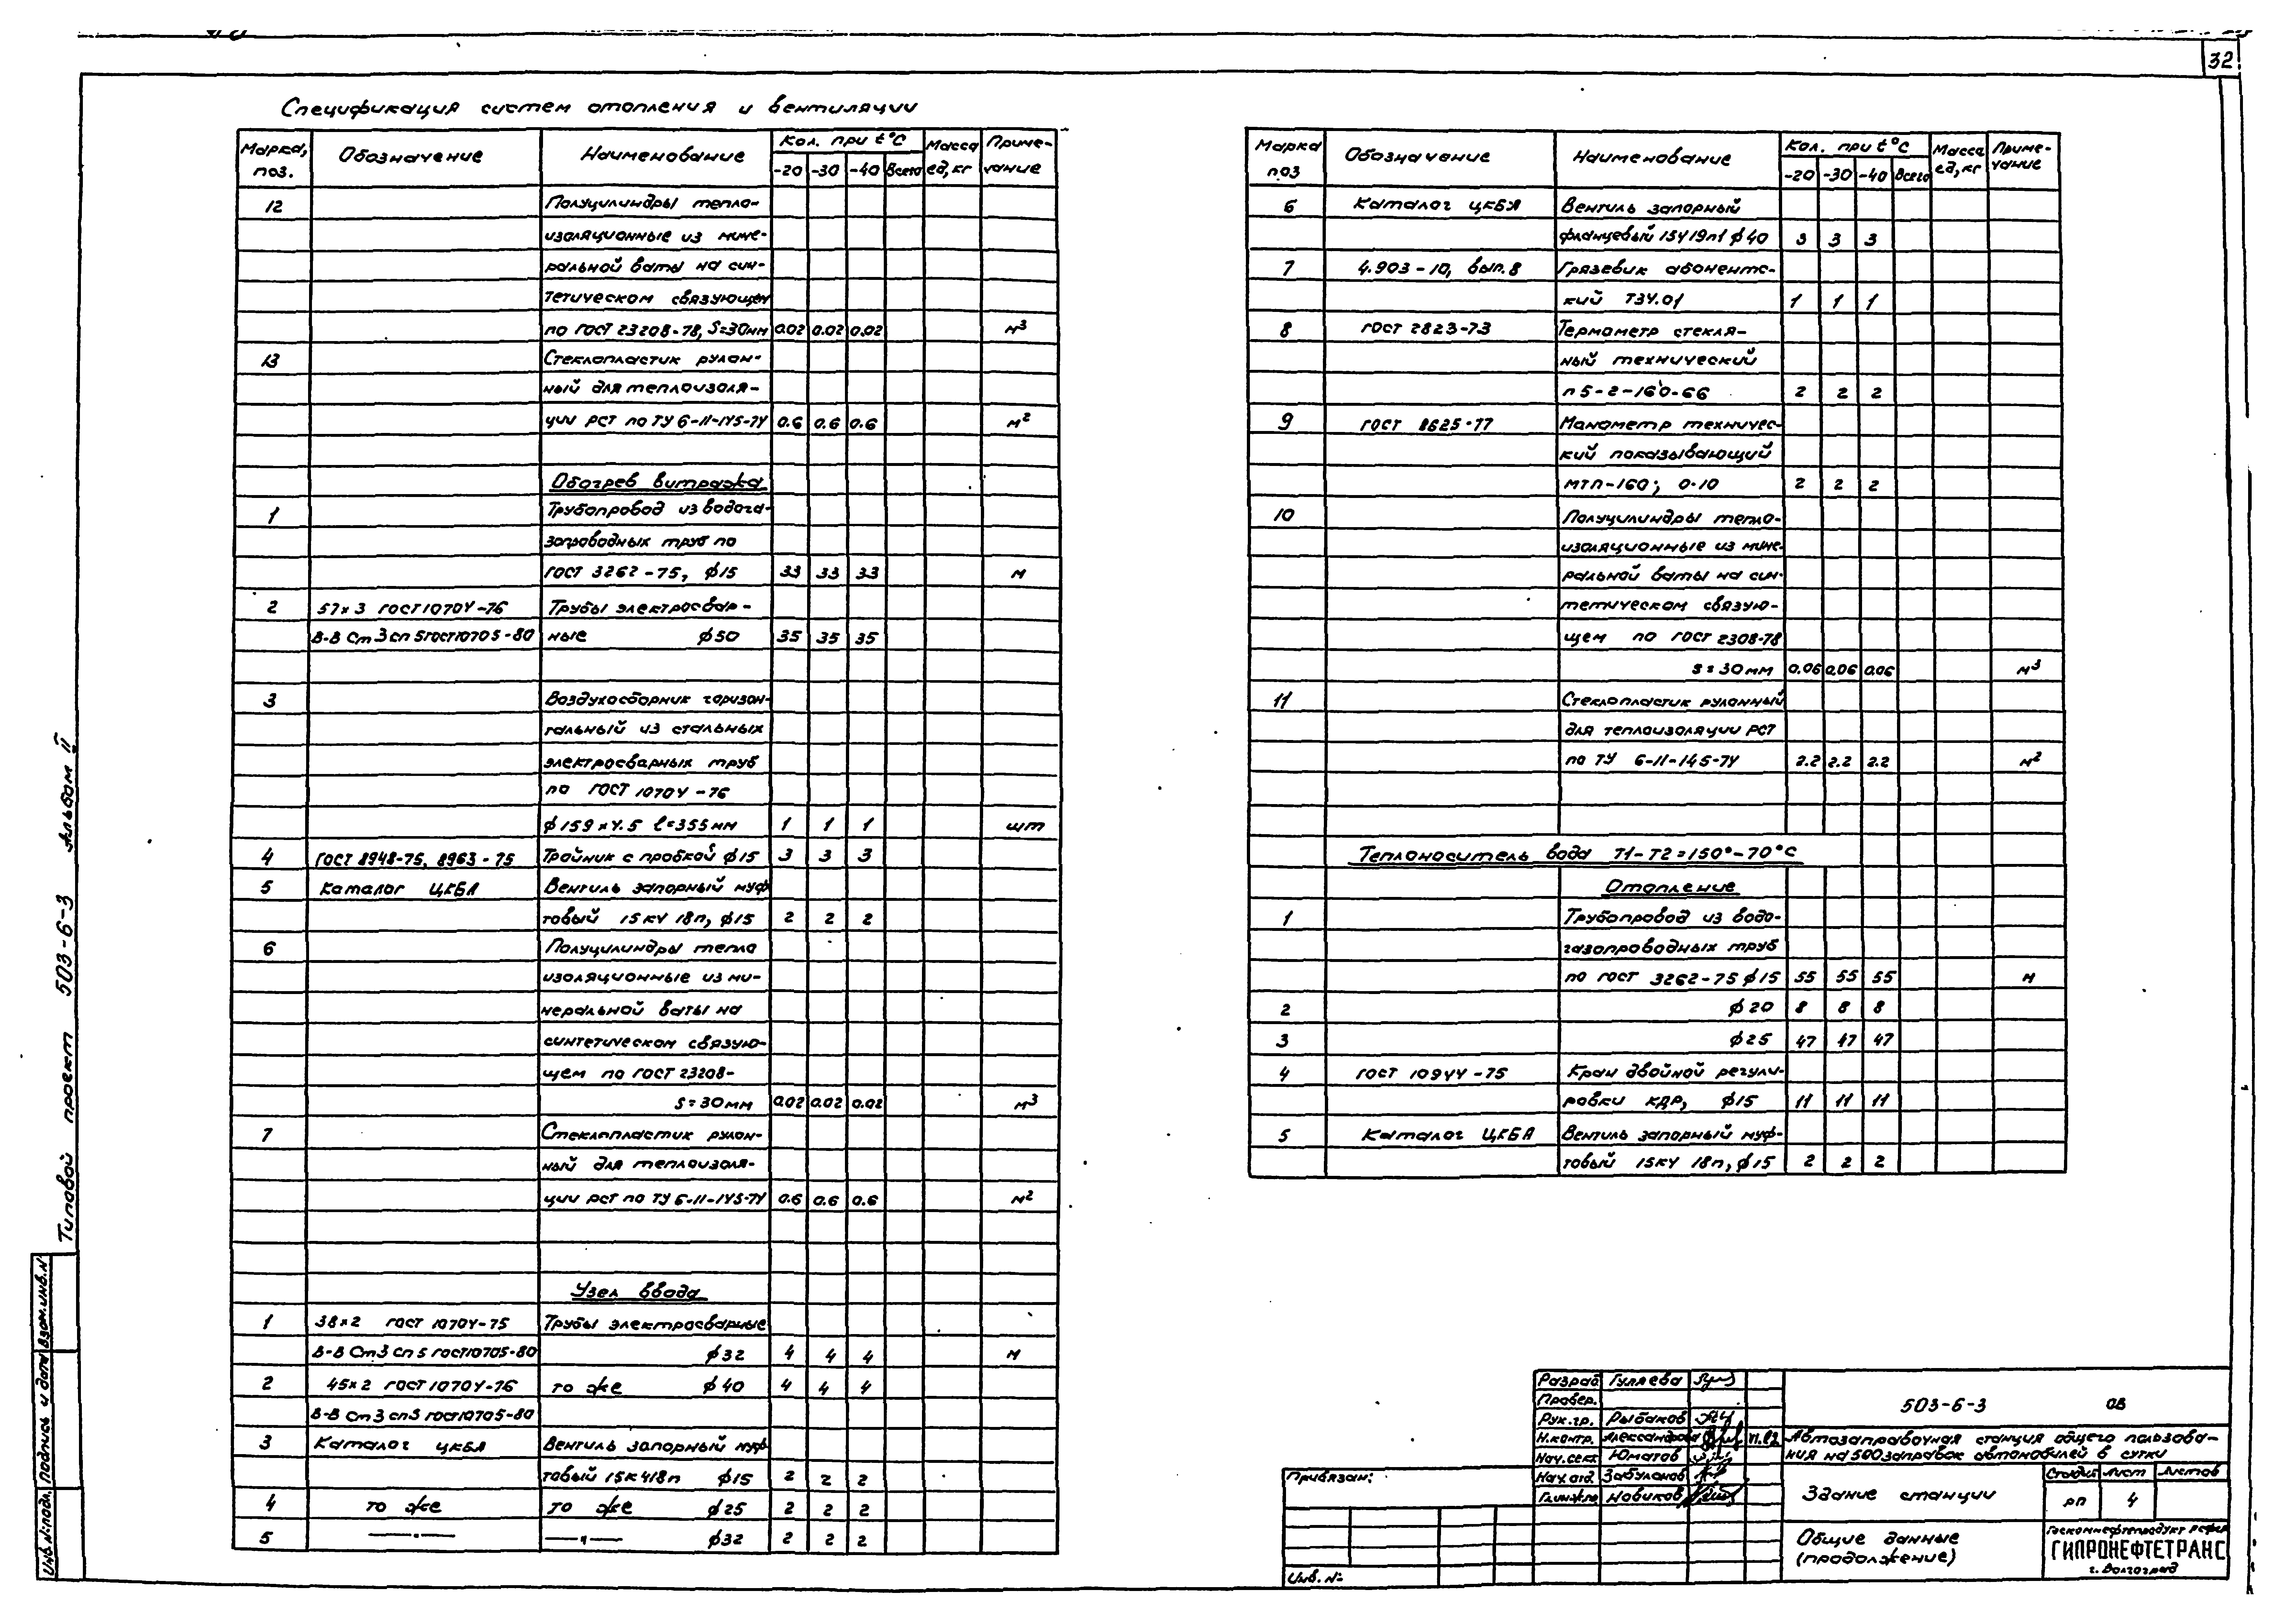 32
Спецификация систем отопления и вентиляции
Марка, поз. Обозначение Наименование Кол. при t°C Масса ед,кг Приме-чание
-20 -30 -40 Всего
12 Полуцилиндры тепло-
изоляционные из мине-
ральной ваты на син-
тетическом связующем
по ГОСТ 23208-78, S=30мм 0.02 0.02 0.02 м³
13 Стеклопластик рулон-
ный для теплоизоля-
ции РСТ по ТУ 6-11-145-74 0.6 0.6 0.6 м²
Обогрев витража
1 Трубопровод из водога-
запроводных труб по
ГОСТ 3262-75, ф15 33 33 33 м
2 57х3 ГОСТ 10704-76 Трубы электросвар-
В-В Ст 3 сп 5 ГОСТ 10705-80 ные ф50 35 35 35
3 Воздухосборник горизон-
тальный из стальных
электросварных труб
по ГОСТ 10704-76
ф159х4.5 l=355мм 1 1 1 шт
4 ГОСТ 8948-75, 8963-75 Тройник с пробкой ф15 3 3 3
5 Каталог ЦКБА Вентиль запорный муф
товый 15КЧ 18п, ф15 2 2 2
6 Полуцилиндры тепло
изоляционные из ми-
неральной ваты на
синтетическом связую-
щем по ГОСТ 23208-
S=30мм 0.02 0.02 0.02 м³
7 Стеклопластик рулон-
ный для теплоизоля-
ции РСТ по ТУ 6-11-145-74 0.6 0.6 0.6 м²
Узел ввода
1 38х2 ГОСТ 10704-75 Трубы электросварные
В-В Ст3 сп 5 ГОСТ10705-80 ф32 4 4 4 м
2 45х2 ГОСТ 10704-76 то же ф40 4 4 4
В-В Ст 3 сп5 ГОСТ10705-80
3 Каталог ЦКБА Вентиль запорный муф
товый 15к418п ф15 2 2 2
4 то же то же ф25 2 2 2
5 —"— —"— ф32 2 2 2
Марка поз Обозначение Наименование Кол. при t°C Масса ед,кг Приме-чание
-20 -30 -40 Всего
6 Каталог ЦКБА Вентиль запорный
фланцевый 15Ч19п1 ф40 3 3 3
7 4.903-10, вып.8 Грязевик абонентс-
кий Т34.01 1 1 1
8 ГОСТ 2823-73 Термометр стекля-
ный технический
п5-2-160-66 2 2 2
9 ГОСТ 8625-77 Манометр техничес-
кий показывающий
МТП-160; 0-10 2 2 2
10 Полуцилиндры тепло-
изоляционные из мине-
ральной ваты на син-
тетическом связую-
щем по ГОСТ 2308-78
S=30мм 0.06 0.06 0.06 м³
11 Стеклопластик рулонный
для теплоизоляции РСТ
по ТУ 6-11-145-74 2.2 2.2 2.2 м²
Теплоноситель вода Т1-Т2=150°-70°С
Отопление
1 Трубопровод из водо-
газопроводных труб
по ГОСТ 3262-75 ф15 55 55 55 м
2 ф20 8 8 8
3 ф25 47 47 47
4 ГОСТ 10944-75 Кран двойной регули-
ровки КДР, ф15 11 11 11
5 Каталог ЦКБА Вентиль запорный муф-
товый 15КЧ 18п, ф15 2 2 2
Типовой проект 503-6-3 Альбом II
Инв.№подл. Подпись и дата Взам.инв.№
Привязан:
Инв. №
Разраб Гуляева
Провер.
Рук.гр. Рыбаков
Н.контр. Александрова VI.82
Нач.сект Юматов
Нач.отд. Забуланов
Гл.инж.пр Новиков
503-6-3 ОВ
Автозаправочная станция общего пользова-
ния на 500 заправок автомобилей в сутки
Здание станции
Стадия Лист Листов
РП 4
Общие данные
(продолжение)
Госкомнефтепродукт РСФСР
ГИПРОНЕФТЕТРАНС
г. Волгоград